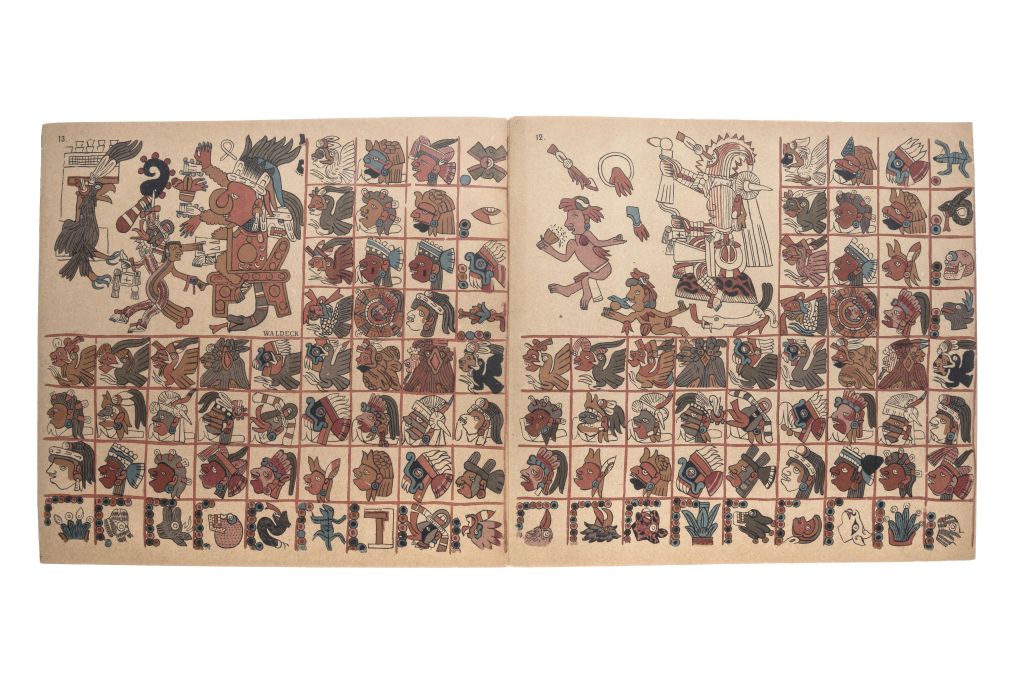 13.
WALDECK
12.